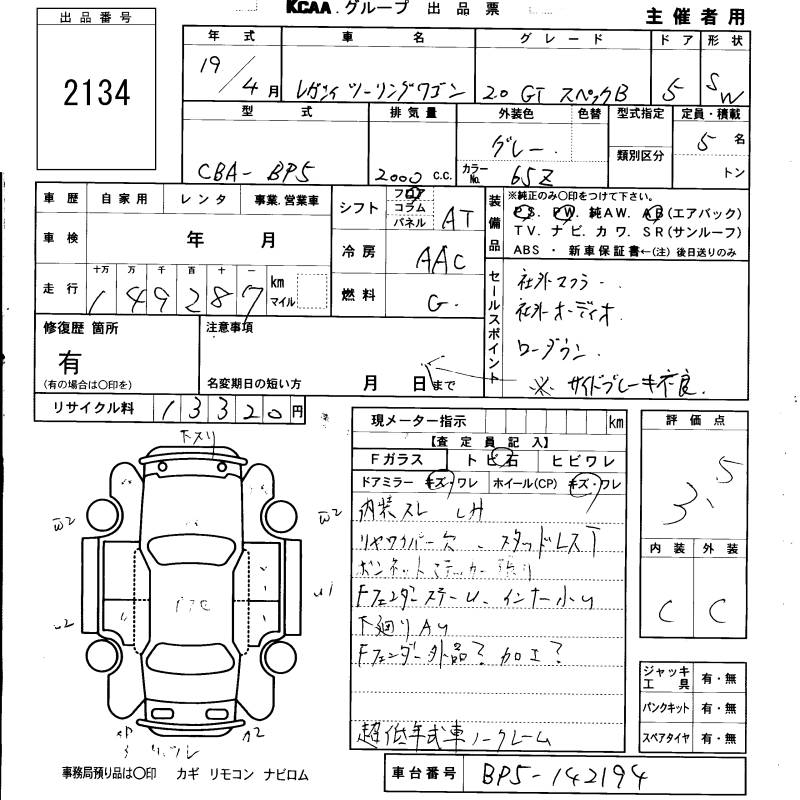 KCAA.グループ 出品票
主催者用
出品番号
2134
年式 車名 グレード ドア 形状
19/4月 レガシィ ツーリングワゴン 2.0 GT スペックB 5 SW
型式 排気量 外装色 色替 型式指定 定員・積載
CBA-BP5 2000 C.C. グレー. 類別区分 5名
カラーNo. 65Z トン
車歴 自家用 レンタ 事業.営業車
車検 年 月
走行 十万 万 千 百 十 一
149287 km マイル
シフト フロア コラム パネル AT
冷房 AAC
燃料 G.
装備品
※純正のみ〇印をつけて下さい。
P.S. PW. 純AW. AB(エアバック)
TV. ナビ. カワ. SR(サンルーフ)
ABS ・ 新車保証書←(注) 後日送りのみ
セールスポイント
社外マフラー.
社外オーディオ.
ローダウン.
※ サイドブレーキ不良.
修復歴 箇所
有
(有の場合は〇印を)
注意事項
名変期日の短い方 月 日まで
リサイクル料 13320円
現メーター指示 km
【査定員記入】
Fガラス トビ石 ヒビワレ
ドアミラー キズ・ワレ ホイール(CP) キズ・ワレ
内装スレ
リヤワイパー欠 スタッドレスT
ボンネットステッカー
Fフェンダー インナー小
下廻りAU
Fフェンダー外品? 加工?
超低年式車ノークレーム
評価点
3.5
内装 外装
C C
ジャッキ工具 有・無
パンクキット 有・無
スペアタイヤ 有・無
下スリ
W2
W2
U2
U1
A2
事務局預り品は〇印 カギ リモコン ナビロム
車台番号 BP5-142194